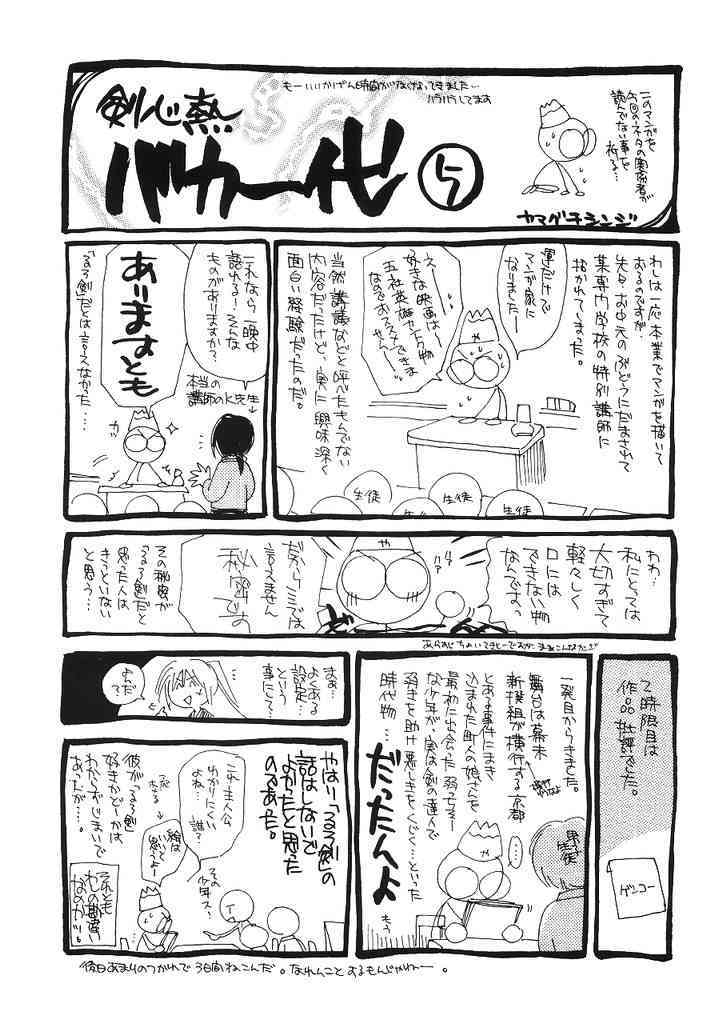 剣心熱
バカ一代
5
もーいいかげん時間がなくなってきました…
バラバラしてます
このマンガを
今回のネタの関係者が
読んでない事を
祈る…
ヤマグチシンジ
わしは一応本業でマンガを描いて
おるのですが、
先々、お中元のぶどうにだまされて
某専門学校の特別講師に
招かれてしまった。
運だけで
マンガ家に
なりましたー
えー…
好きな映画は〜
五社英雄カントク物
なのでおススメできま
せん
生徒
生徒
生徒
当然講議などと呼べたもんでない
内容だったけど、実に興味深く
面白い経験だったのだ。
これなら一晩中
語れる!そんな
ものがありますか?
本当の
講師のK先生
ありますとも
ガバ
「るろ剣」だとは言えなかった……
わわ…
私にとっては
大切すぎて
軽々しく
口には
できない物
なんですっ
ハァ
ハァ
だからココでは
言えません
秘密です
その秘密が
るろ剣だと
思った人は
きっといない
と思う…
2時限目は
作品批評でした。
ゲンコー
一発目からきました。
舞台は幕末
新撰組が横行する京都
とある事件にまき
込まれた町人の娘さを
最初に出会った弱っちそー
な少年が、実は剣の達人で
弱きを助け悪しきをくじく…といった
時代物…
だったんよ
もう
男子
生徒
……
まぁ…
よくある
設定…
という
事にして…
よろ
?
やはり「るろ剣」の
話はしないで
よかったと思った
のであった。
これ主人公
わかりにくい
よね…誰?
その
少年ス…
絵は
いいと
思うよー
彼が「るろ剣」
好きかどーかは
わからずじまいで
あったが……。
それとも
わしの勘違い
なのかっ。
後日あまりのつかれで3日間ねこんだ。なれんことするもんじゃねー。